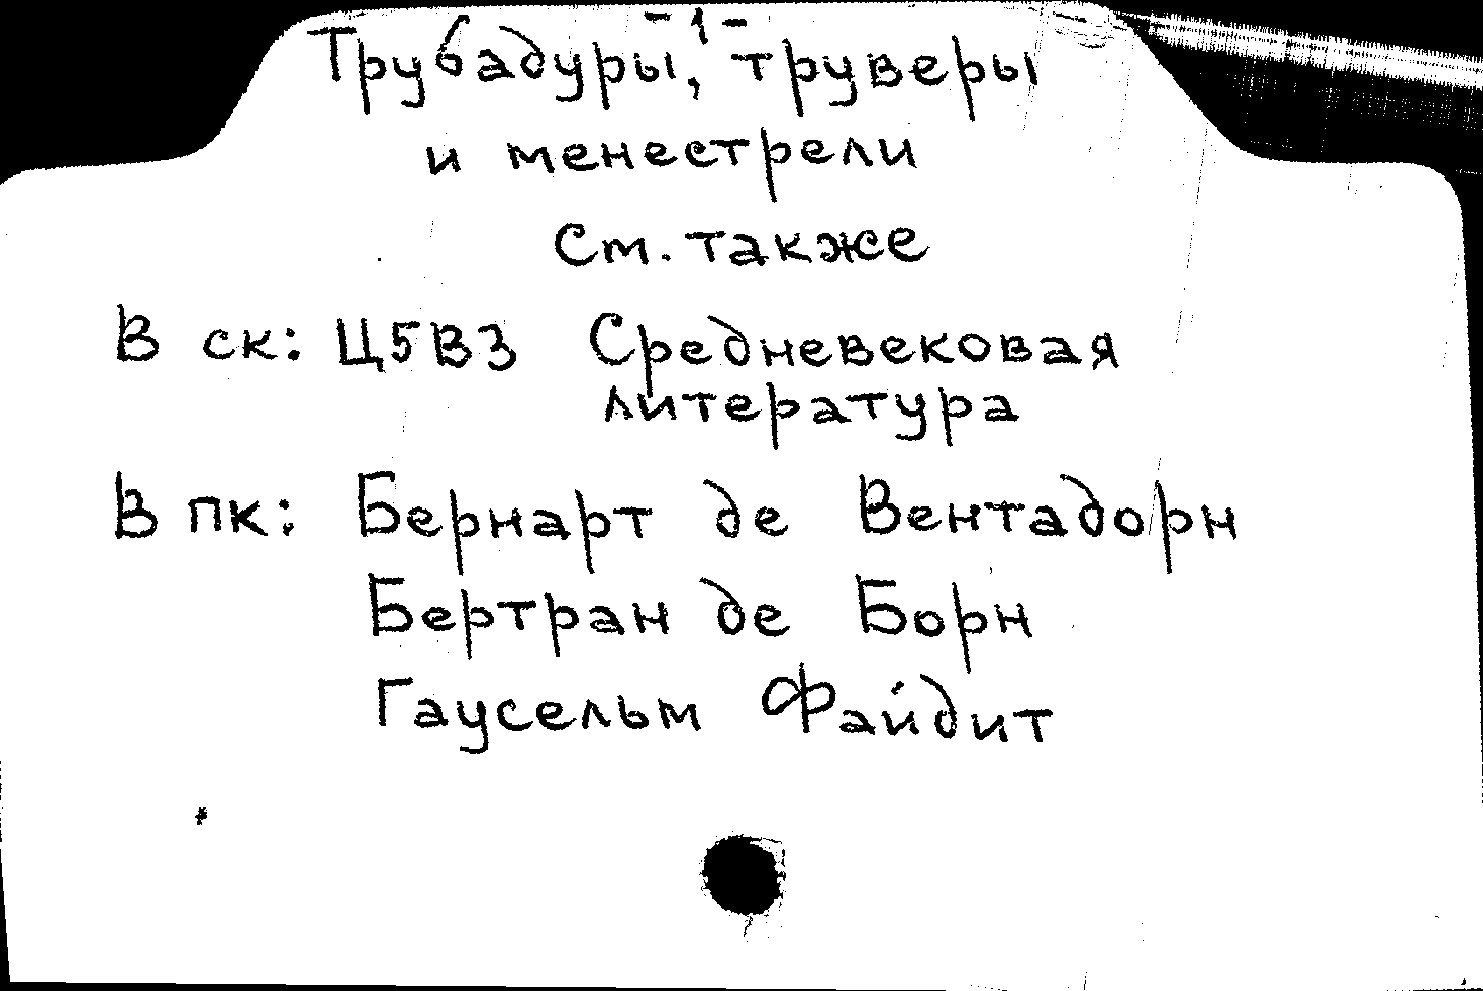 - 1 -
Трубадуры, труверы
и менестрели
См. также
В ск: Ц5В3 Средневековая
литература
В пк: Бернарт де Вентадорн
Бертран де Борн
Гаусельм Файдит